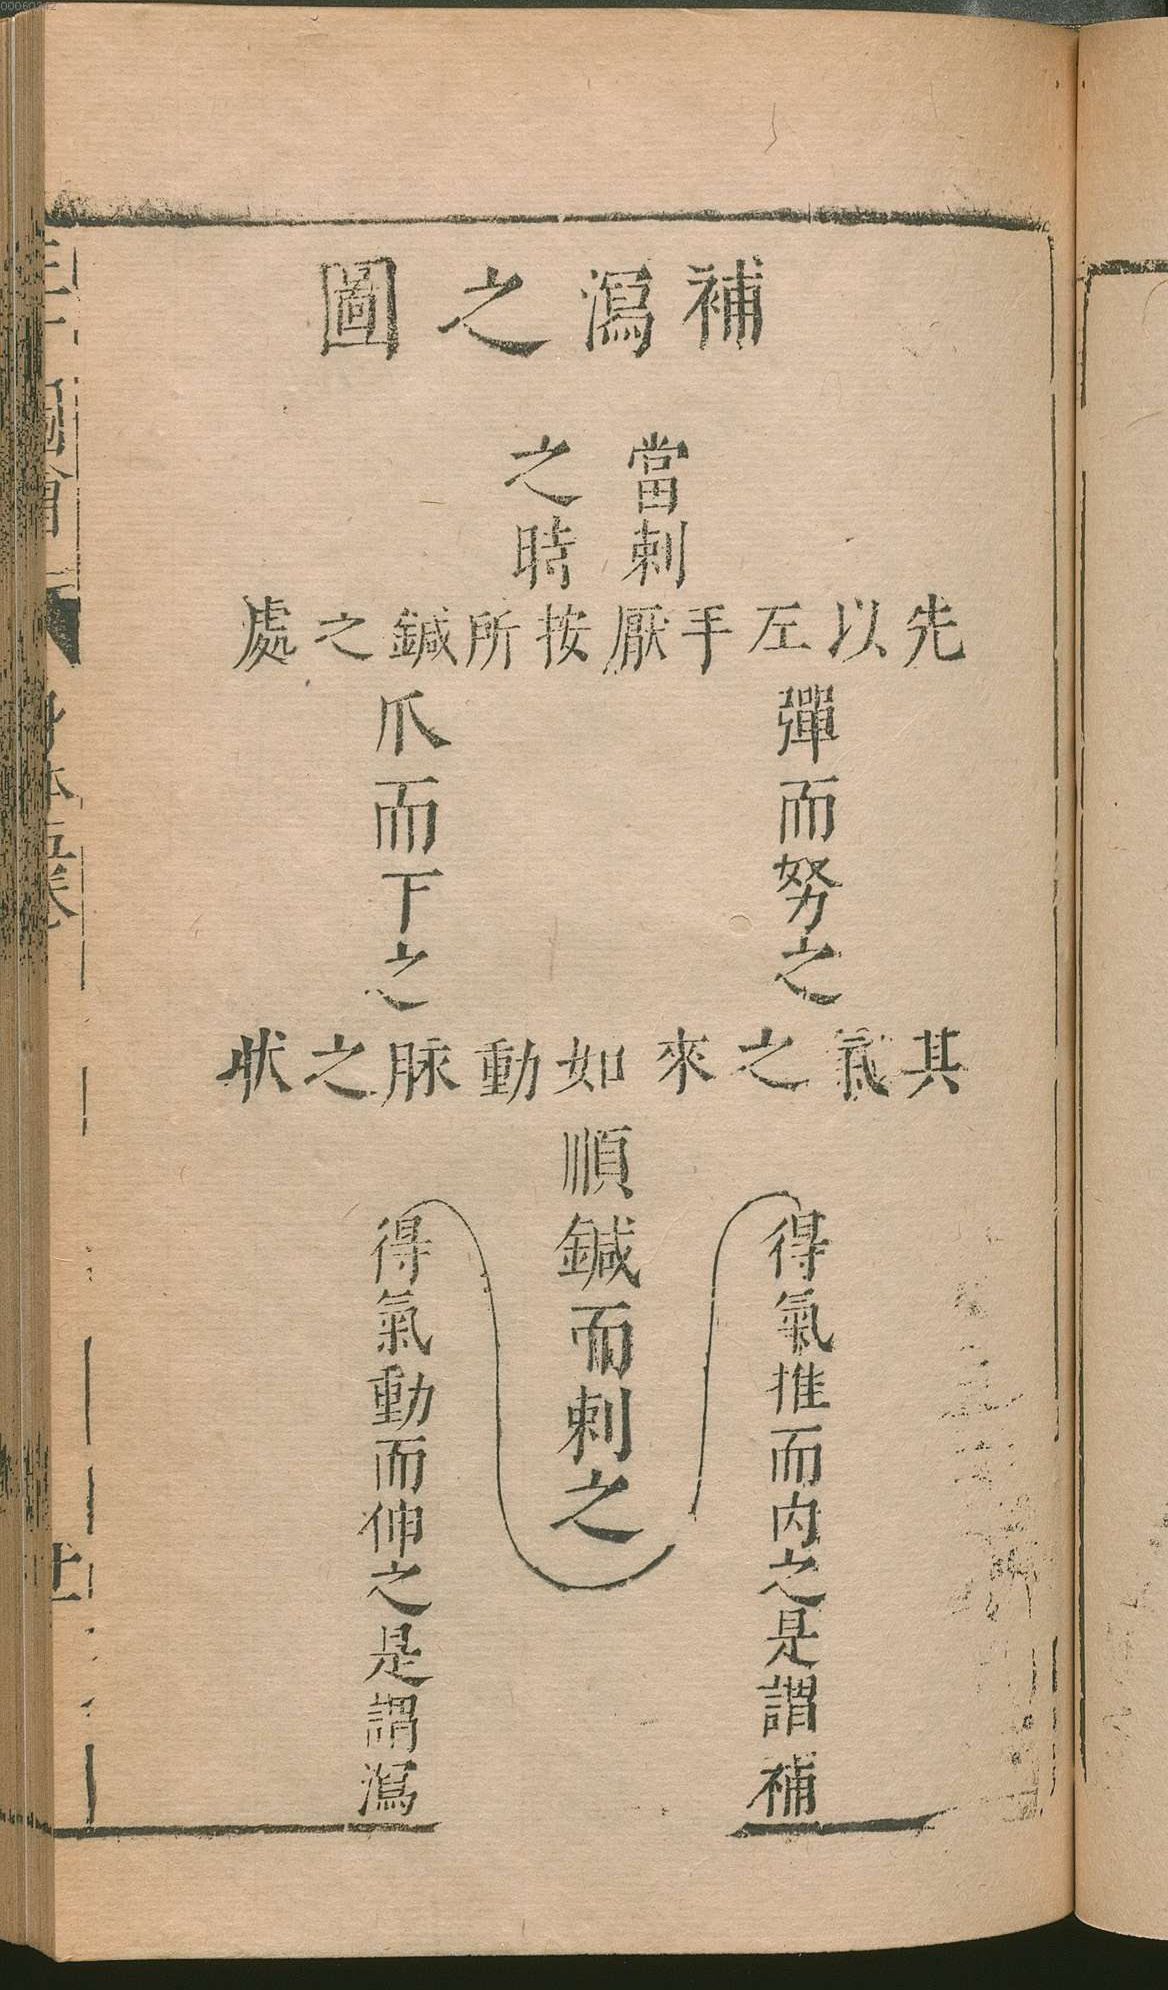 補瀉之圖
當刺
之時
先以左手厭按所鍼之處
彈而努之
爪而下之
其氣之來如動脉之狀
順鍼而刺之
得氣推而内之是謂補
得氣動而伸之是謂瀉